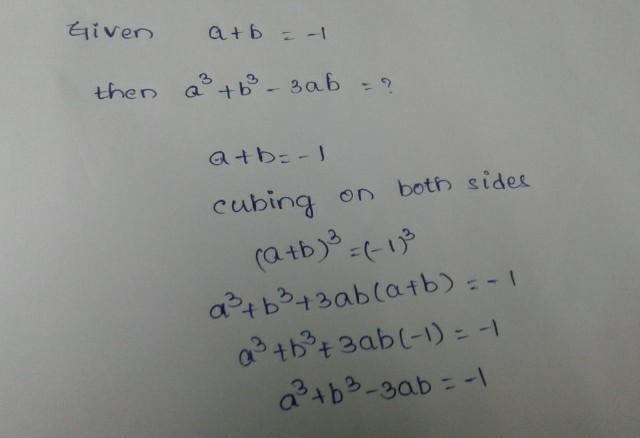 Given a+b = -1
then a³+b³ - 3ab = ?
a+b = -1
cubing on both sides
(a+b)³ = (-1)³
a³+b³+3ab(a+b) = -1
a³+b³+3ab(-1) = -1
a³+b³-3ab = -1